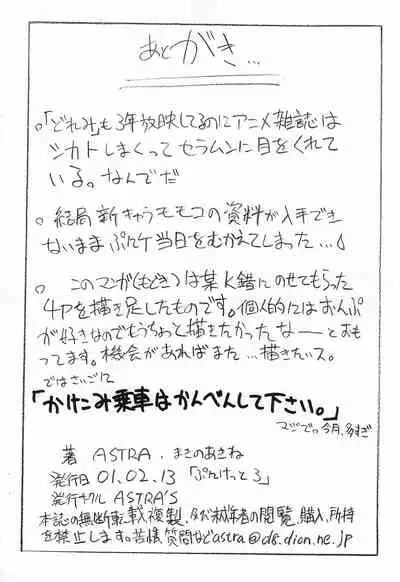 あとがき…
。「どれみ」も3年放映してるのにアニメ雑誌は
シカトしまくってセラムンに目をくれて
いる。なんでだ
。結局新キャラモモコの資料が入手でき
ないままぷにケ当日をむかえてしまった…♩
。このマンガ(もどき)は某K錯にのせてもらった
4Pを描き足したものです。個人的にはおんぷ
が好きなのでもうちょっと描きたかったなーとおも
ってます。機会があればまた…描きたいス。
ではさいごに
「かけこみ乗車はかんべんして下さい。」
マジでっ今月、多すぎ
著 ASTRA. まきのあきね
発行日 01.02.13 「ぷにけっと3」
発行サークル ASTRA'S
本誌の無断転載複製、及び未成年者の閲覧、購入、所持
を禁止します。苦情質問などastra@d8.dion.ne.jp